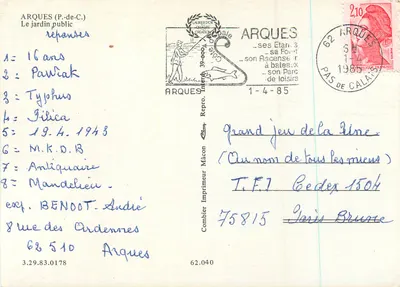 ARQUES (P.-de-C.)
Le jardin public
réponses
1 = 16 ans
2 = Pawiak
3 = Typhus
4 = Pilica
5 = 19.4.1943
6 = M.K.D.B
7 = Antiquaire
8 = Mandelieu
exp. BENOOT-André
8 rue des Ardennes
62510 Arques
3.29.83.0178
62.040
Combier Imprimeur Mâcon
Repro. Interd.
ARQUES
ARQUES
...ses Etangs
sa Forêt
...son Ascenseur
à bateaux
...son Parc
de loisirs
1-4-85
62 ARQUES
1985
PAS DE CALAIS
2,10
Grand jeu de la Une
(Au nom de tous les miens)
T.F.1 Cedex 1504
75815 Paris Brune